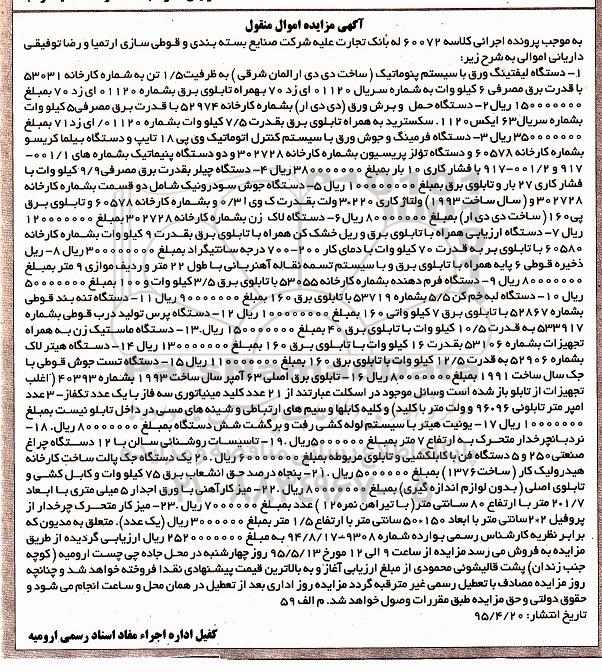 آگهی مزایده اموال منقول
به موجب پرونده اجرائی کلاسه ۶۰۰۷۲ له بانک تجارت علیه شرکت صنایع بسته بندی و قوطی سازی ارتمیا و رضا توفیقی
داریانی اموالی به شرح زیر:
۱- دستگاه لیفتینگ ورق با سیستم پنوماتیک (ساخت دی دی ار المان شرقی) به ظرفیت۱/۵ تن به شماره کارخانه ۵۳۰۳۱
با قدرت برق مصرفی ۶ کیلو وات به شماره سریال ۰۱۱۲۰ ای زد ۷۰ بهمراه تابلوی برق بشماره ۰۱۱۲۰ ای زد ۷۰ بمبلغ
۱۵۰۰۰۰۰۰۰ ریال۲- دستگاه حمل و برش ورق (دی دی ار) بشماره کارخانه ۵۲۹۷۴ با قدرت برق مصرفی۵ کیلو وات
بشماره سریال۶۳ ایکس۱۱۲۰. سکسترید به همراه تابلوی برق بقدرت ۷/۵ کیلو وات بشماره ۰۱۱۲۰/ ای زد۷۱ بمبلغ
۳۵۰۰۰۰۰۰۰۰ ریال ۳- دستگاه فرمینگ و جوش ورق با سیستم کنترل اتوماتیک وی پی ۱۸ تایپ و دستگاه بیلما کریسو
بشماره کارخانه ۶۰۵۷۸ و دستگاه تؤلز پریسیون بشماره کارخانه ۳۰۲۷۲۸ و دو دستگاه پنیماتیک بشماره های ۰۰۱/۱-
۹۱۷ و ۰۰۱/۲-۹۱۷ با فشار کاری ۱۰ بار بمبلغ ۳۸۰۰۰۰۰۰۰۰ ریال ۴- دستگاه چیلر بقدرت برق مصرفی۹/۹ کیلو وات با
فشار کاری ۲۷ بار و تابلوی برق بمبلغ ۱۰۰۰۰۰۰۰۰ ریال ۵- دستگاه جوش سودرونیک شامل دو قسمت بشماره کارخانه
۳۰۲۷۲۸ و (سال ساخت ۱۹۹۳) ولتاژ کاری ۲۲۰*۳ ولت بقدرت ک وی ۰/۳۱ و بشماره کارخانه ۶۰۵۷۸ و تابلوی برق
پی۱۶۰ (ساخت دی دی ار) بمبلغ ۸۰۰۰۰۰۰۰۰ ریال ۶- دستگاه لاک زن بشماره کارخانه ۳۰۲۷۲۸ بمبلغ ۱۲۰۰۰۰۰۰۰
ریال ۷- دستگاه ارزیابی همراه با تابلوی برق و ریل خشک کن همراه با تابلوی برق بقدرت ۹ کیلو وات بشماره کارخانه
۶۰۵۸۰ با تابلوی بر به قدرت ۷۰ کیلو وات با دمای کار ۲۰۰-۷۰۰ درجه سانتیگراد بمبلغ ۳۰۰۰۰۰۰۰۰ ریال ۸- ریل
ذخیره قوطی ۶ پایه همراه با تابلوی برق و با سیستم تسمه نقاله آهنربائی با طول ۲۲ متر و ردیف موازی ۹ متر بمبلغ
۸۰۰۰۰۰۰۰۰ ریال ۹- دستگاه فرم دهنده بشماره کارخانه ۵۳۰۵۵ با تابلوی برق ۳/۵ کیلو وات و ۱۰ بمبلغ ۵۰۰۰۰۰۰۰۰
ریال ۱۰- دستگاه لبه خم کن ۵/۵ بشماره ۵۳۷۱۹ با تابلوی برق ۱۶۰ بمبلغ ۹۰۰۰۰۰۰۰۰ ریال ۱۱- دستگاه تنه بند قوطی
بشماره ۵۲۸۶۷ با تابلوی برق ۷ کیلو واتی ۱۶۰ بمبلغ ۱۰۰۰۰۰۰۰۰۰ ریال ۱۲- دستگاه پرس تولید درب قوطی بشماره
۵۳۳۹۱۷ به قدرت ۱۰/۵ کیلو وات با تابلوی برق ۴۰ بمبلغ ۶۰۰۰۰۰۰۰۰ ریال.۱۳- دستگاه ماستیک زن به همراه
تجهیزات بشماره ۵۳۱۰۶ بقدرت ۱۶ کیلو وات با تابلوی برق ۱۶۰ بمبلغ ۱۳۰۰۰۰۰۰۰۰ ریال ۱۴- دستگاه هیتر لاک
بشماره ۵۲۹۰۶ به قدرت ۱۲/۵ کیلو وات با تابلوی برق ۱۶۰ بمبلغ ۱۱۰۰۰۰۰۰۰۰ ریال ۱۵- دستگاه تست جوش قوطی با
جک سال ساخت ۱۹۹۱ بمبلغ ۸۰۰۰۰۰۰۰۰ ریال ۱۶- تابلوی برق اصلی۶۳ آمپر سال ساخت ۱۹۹۳ بشماره ۴۰۳۹۳ (اغلب
تجهیزات از تابلو باز شده است وسائل موجود در اسکلت عبارتند از ۲۱ عدد کلید مینیاتوری سه فاز با یک عدد تکفاز- ۳ عدد
امپر متر تابلوئی ۹۶*۹۶ و ولت متر با کلید) و کلیه کابلها و سیم های ارتباطی و شینه های مسی در داخل تابلو نیست بمبلغ
۱۰۰۰۰۰۰۰ ریال ۱۷- یونیت هیتر با سیستم لوله کشی رفت و برگشت شش دستگاه بمبلغ ۸۰۰۰۰۰۰۰ ریال. ۱۸-
نردبانچرخدار متحرک به ارتفاع ۷ متر بمبلغ ۵۰۰۰۰۰۰ ریال .۱۹- تاسیسات روشنائی سالن با ۱۲ دستگاه چراغ
صنعتی ۲۵۰ و ۵ دستگاه فن با کابلکشی و تابلوی مربوطه بمبلغ ۶۰۰۰۰۰۰۰ ریال. ۲۰. یک دستگاه جک پالت ساخت کارخانه
هیدرولیک کار (ساخت۱۳۷۶) بمبلغ ۵۰۰۰۰۰۰ ریال .۲۱- پنجاه درصد حق انشعاب برق ۷۵ کیلو وات و کابل کشی و
تابلوی اصلی (بدون لوازم اندازه گیری) بمبلغ ۸۰۰۰۰۰۰۰ ریال .۲۲- میز کار آهنی با ورق اجدار ۵ میلی متری با ابعاد
۷*۲۰۱ متر با ارتفاع ۸۰ سانتی متر (با تیراهن نمره۱۲) ۲ عدد بمبلغ ۷۰۰۰۰۰۰ ریال .۲۳- میز کار متحرک چرخدار از
پروفیل ۲*۲سانتی متر با ابعاد ۱۵۰*۵۰ سانتی متر با ارتفاع ۱/۵ متر بمبلغ ۳۰۰۰۰۰۰ ریال (یک عدد). متعلق به مدیون که
برابر نظریه کارشناس رسمی بوارده شماره ۹۳۰۸-۹۴/۸/۱۷ به مبلغ ۲۵۲۰۰۰۰۰۰۰۰ ریال ارزیابی گردیده از طریق
مزایده به فروش می رسد مزایده از ساعت ۹ الی ۱۲ مورخ ۹۵/۵/۱۳ روز چهارشنبه در محل جاده چی چست ارومیه (کوچه
جنب زندان) پشت قالیشوئی محمودی از مبلغ ارزیابی آغاز و به بالاترین قیمت پیشنهادی نقدا فروخته خواهد شد و چنانچه
روز مزایده مصادف با تعطیل رسمی غیر مترقبه گردد مزایده روز اداری بعد از تعطیل در همان محل و ساعت انجام می شود و
حقوق دولتی و حق مزایده طبق مقررات وصول خواهد شد. م الف ۵۹
تاریخ انتشار: ۹۵/۴/۲۰
کفیل اداره اجراء مفاد اسناد رسمی ارومیه